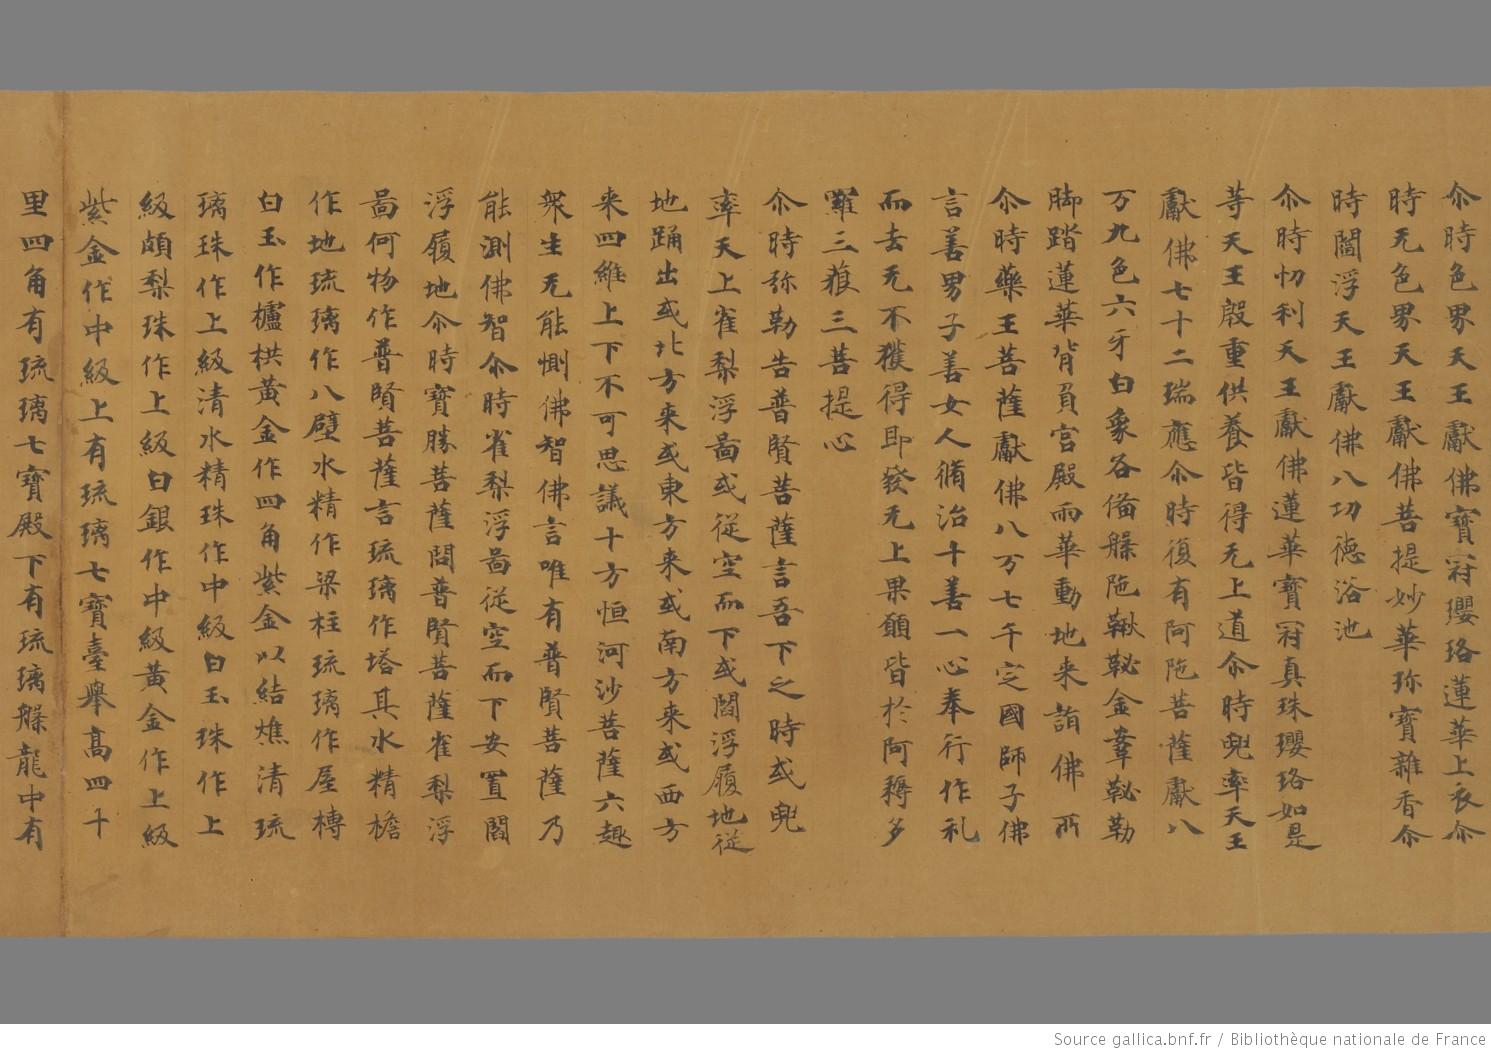 尒時色界天王獻佛寶冠瓔珞蓮華上衣尒
時无色界天王獻佛菩提妙華珎寶雜香尒
時閻浮天王獻佛八功德浴池
尒時忉利天王獻佛蓮華寶冠真珠瓔珞如是
等天王慇重供養皆得无上道尒時兜率天王
獻佛七十二瑞應尒時復有阿陁菩薩獻八
万九色六牙白象各俻𦨣陁鞦鞍金鞌鞍勒
脚踏蓮華背負宫殿雨華動地来詣佛所
尒時藥王菩薩獻佛八万七千定國師子佛
言善男子善女人脩治十善一心奉行作礼
而去无不獲得即發无上果願皆於阿耨多
羅三藐三菩提心
尒時弥勒告普賢菩薩言吾下之時或兜
率天上雀梨浮啚或従空而下或閻浮履地従
地踊出或北方来或東方来或南方来或西方
来四維上下不可思議十方恒河沙菩薩六趣
衆生无能惻佛智佛言唯有普賢菩薩乃
能測佛智尒時雀梨浮啚従空而下安置閻
浮履地尒時寶勝菩薩問普賢菩薩雀梨浮
啚何物作普賢菩薩言琉璃作塔其水精檐
作地琉璃作八壁水精作梁柱琉璃作屋槫
白玉作櫨栱黃金作四角紫金以結燋清琉
璃珠作上級清水精珠作中級白玉珠作上
級頗梨珠作上級白銀作中級黃金作上級
紫金作中級上有琉璃七寶臺舉高四千
里四角有琉璃七寶殿下有琉璃𦨣龍中有